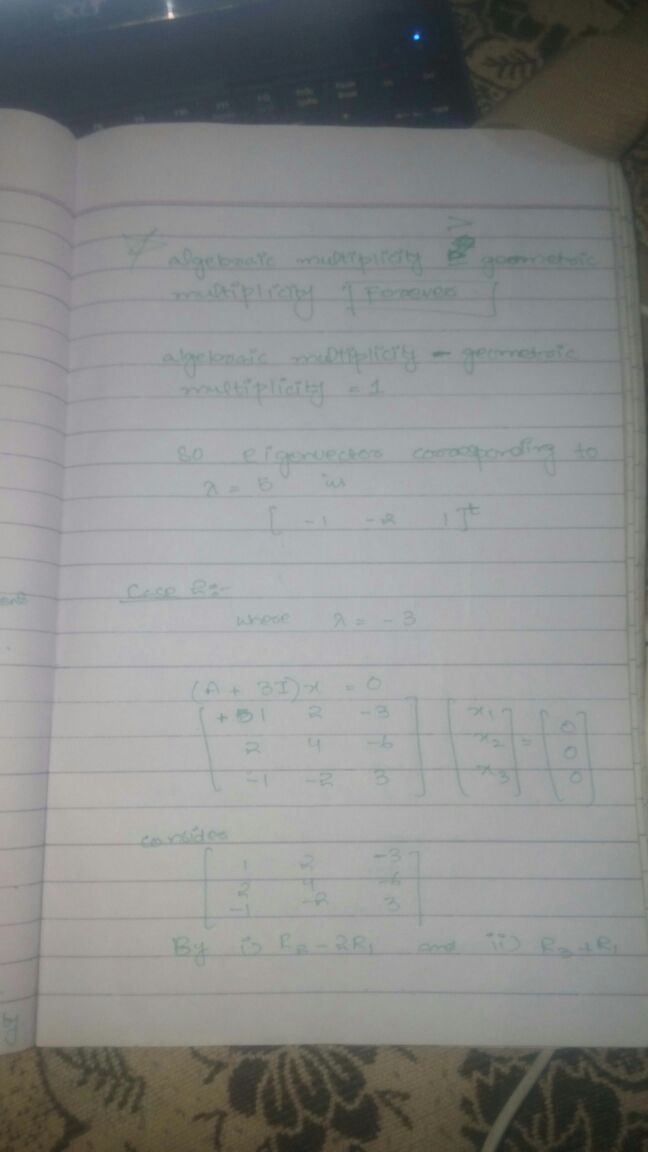 acer
>
algebraic multiplicity geometric
multiplicity [Forever.]
algebraic multiplicity = geometric
multiplicity = 1
so eigenvector corresponding to
λ = 5 is
[ -1 -2 1 ]t
Case 2:-
whose λ = -3
(A + 3I)x = 0
[ + 1 2 -3 ] [ x1 ] = [ 0 ]
[ 2 4 -6 ] [ x2 ] [ 0 ]
[ -1 -2 3 ] [ x3 ] [ 0 ]
consider
[ 1 2 -3 ]
[ 2 4 -6 ]
[ -1 -2 3 ]
By i) R2 - 2R1 and ii) R3 + R1